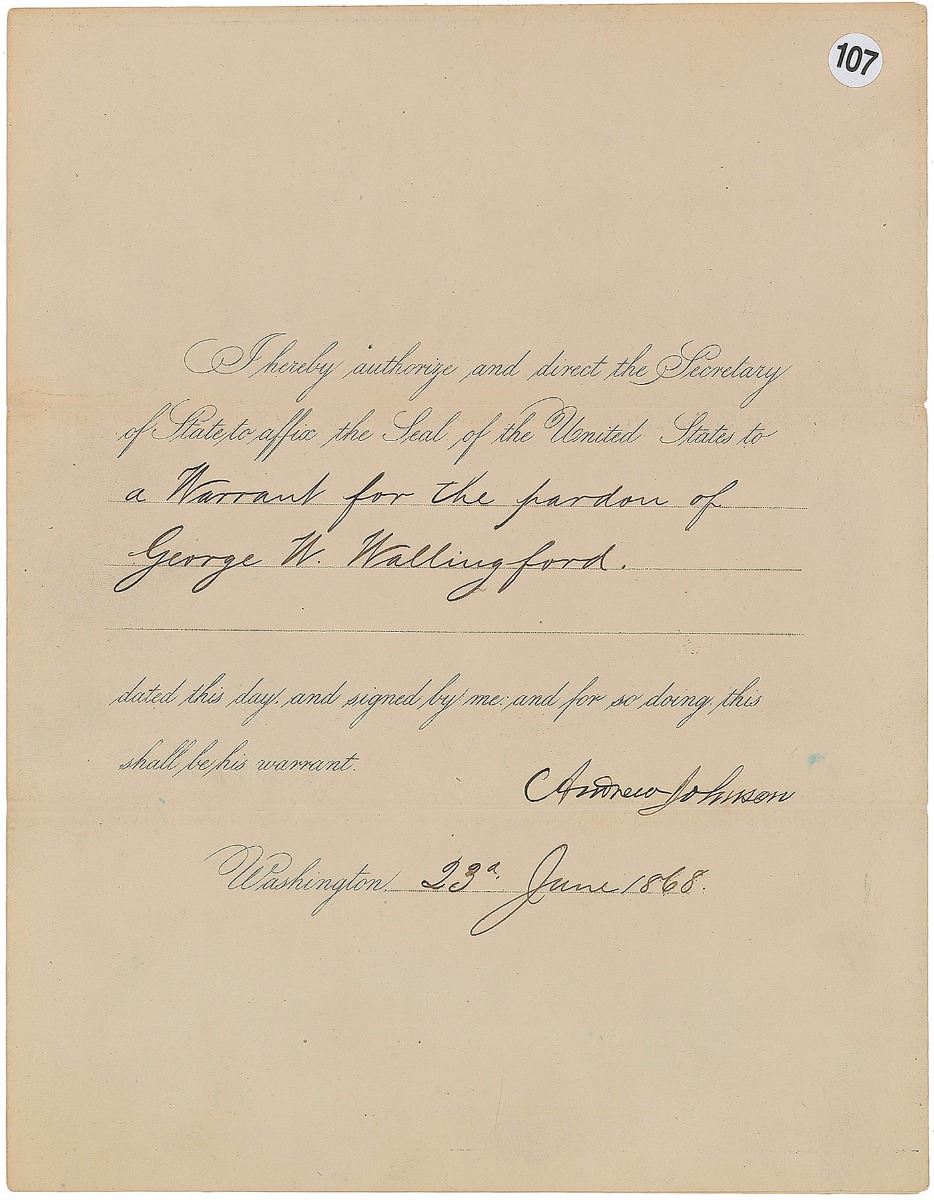 107
I hereby authorize and direct the Secretary
of State, to affix the Seal of the United States to
a Warrant for the pardon of
George W. Wallingford.
dated this day, and signed by me: and for so doing, this
shall be his warrant.
Andrew Johnson
Washington, 23d. June 1868.